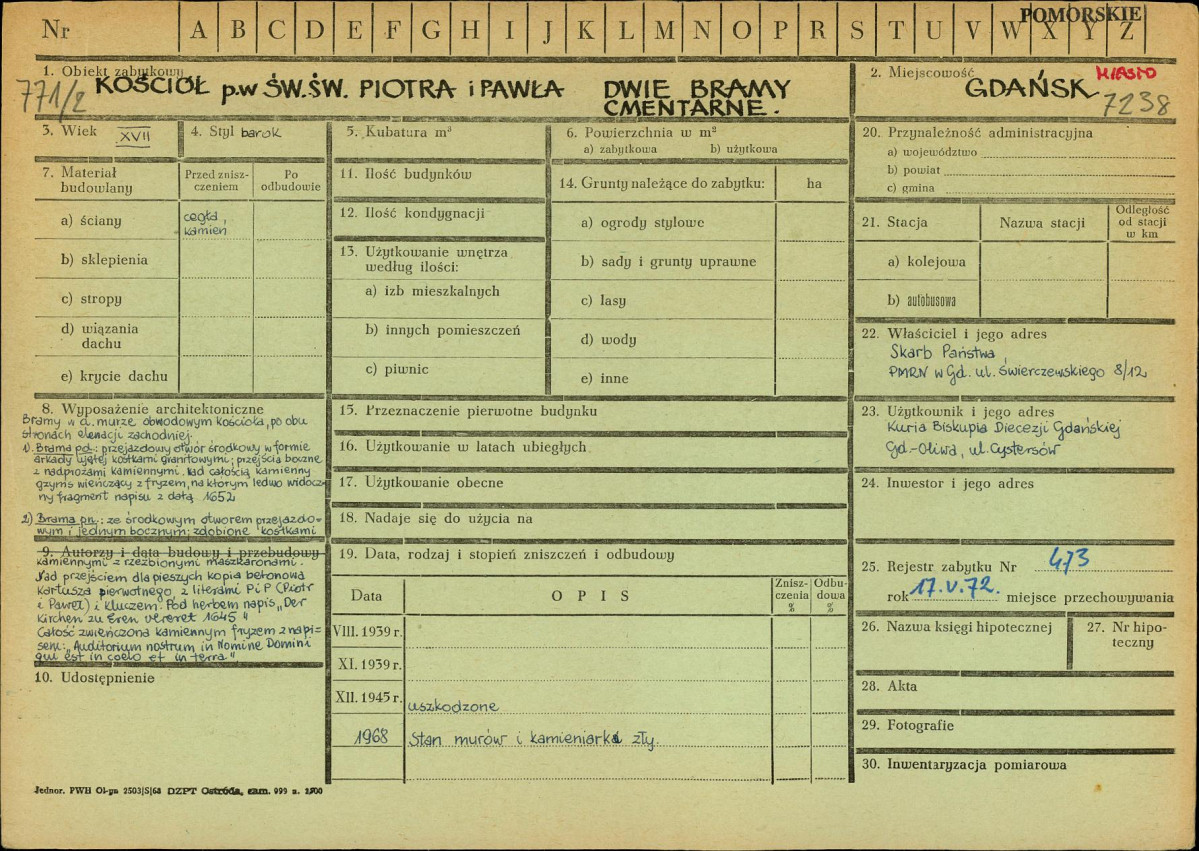 Nr A B C D E F G H I J K L M N O P R S T U V W X Y Z
POMORSKIE
1. Obiekt zabytkowy
771/2
KOŚCIÓŁ p.w ŚW.ŚW. PIOTRA i PAWŁA DWIE BRAMY
CMENTARNE.
2. Miejscowość
MIASTO
GDAŃSK
7238
3. Wiek XVII
4. Styl barok
5. Kubatura m³
6. Powierzchnia w m²
a) zabytkowa b) użytkowa
7. Materiał
budowlany
Przed znisz-
czeniem
Po
odbudowie
a) ściany
cegła,
kamień
b) sklepienia
c) stropy
d) wiązania
dachu
e) krycie dachu
11. Ilość budynków
12. Ilość kondygnacji
13. Użytkowanie wnętrza
według ilości:
a) izb mieszkalnych
b) innych pomieszczeń
c) piwnic
14. Grunty należące do zabytku: ha
a) ogrody stylowe
b) sady i grunty uprawne
c) lasy
d) wody
e) inne
20. Przynależność administracyjna
a) województwo
b) powiat
c) gmina
21. Stacja Nazwa stacji
Odległość
od stacji
w km
a) kolejowa
b) autobusowa
22. Właściciel i jego adres
Skarb Państwa
PMRN w Gd. ul. Świerczewskiego 8/12
8. Wyposażenie architektoniczne
Bramy w d. murze obwodowym kościoła, po obu
stronach elewacji zachodniej.
1). Brama pd.: przejazdowy otwór środkowy w formie
arkady ujętej kostkami granitowymi; przejścia boczne
z nadprożami kamiennymi. Nad całością kamienny
gzyms wieńczący z fryzem, na którym ledwo widocz-
ny fragment napisu z datą 1652
2) Brama pn.: ze środkowym otworem przejazdo-
wym i jednym bocznym; zdobione kostkami
9. Autorzy i data budowy i przebudowy
kamiennymi z rzeźbionymi maszkaronami.
Nad przejściem dla pieszych kopia betonowa
kartusza pierwotnego z literami P i P (Piotr
i Paweł) i kluczem. Pod herbem napis „Der
Kirchen zu Eren vereret 1645"
Całość zwieńczona kamiennym fryzem z napi-
sem: „Auditorium nostrum in Nomine Domini
qui est in coelo et in terra".
10. Udostępnienie
15. Przeznaczenie pierwotne budynku
16. Użytkowanie w latach ubiegłych
17. Użytkowanie obecne
18. Nadaje się do użycia na
19. Data, rodzaj i stopień zniszczeń i odbudowy
Data OPIS
Znisz-
czenia
%
Odbu-
dowa
%
VIII. 1939 r.
XI. 1939 r.
XII. 1945 r. uszkodzone
1968 Stan murów i kamieniarki zły.
23. Użytkownik i jego adres
Kuria Biskupia Diecezji Gdańskiej
Gd-Oliwa, ul. Cystersów
24. Inwestor i jego adres
25. Rejestr zabytku Nr 473
rok 17.V.72. miejsce przechowywania
26. Nazwa księgi hipotecznej
27. Nr hipo-
teczny
28. Akta
29. Fotografie
30. Inwentaryzacja pomiarowa
Jednor. PWH Ol-gn 2503|S|68 DZPT Ostróda, zam. 999 n. 2500